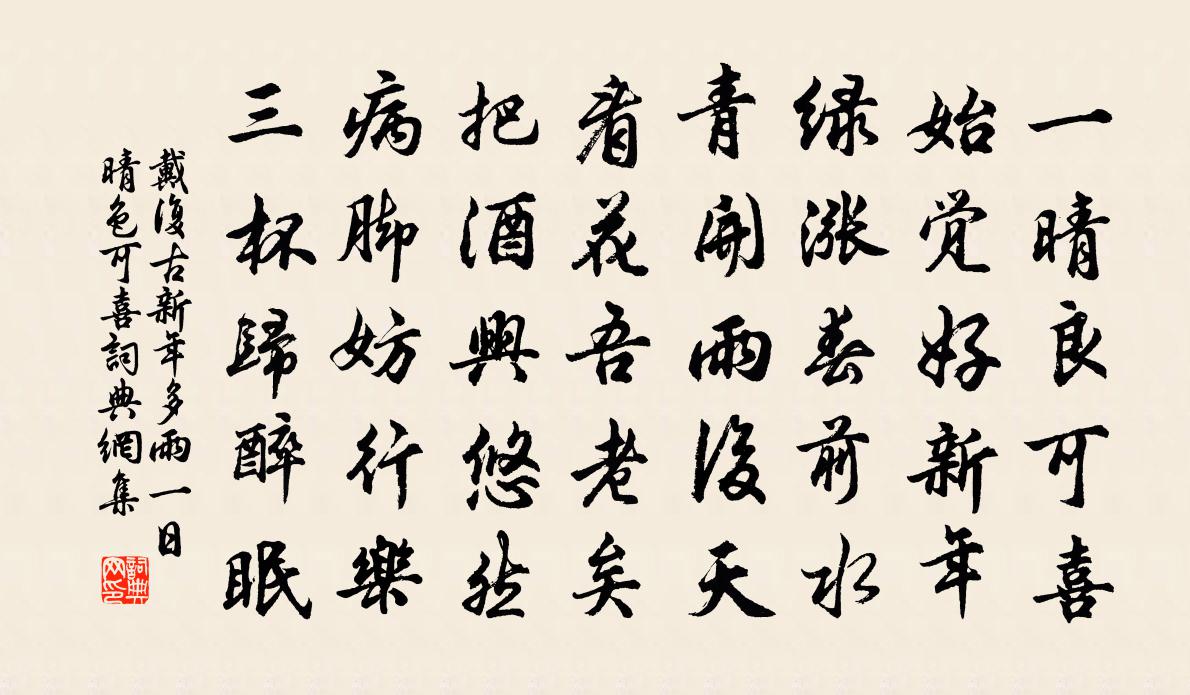 一晴良可喜
始觉好新年
緑漲春前水
青開雨後天
看花吾老矣
把酒興悠然
病脚妨行樂
三杯歸醉眠
戴復古新年多雨一日
晴色可喜詞典網集
詞典网印